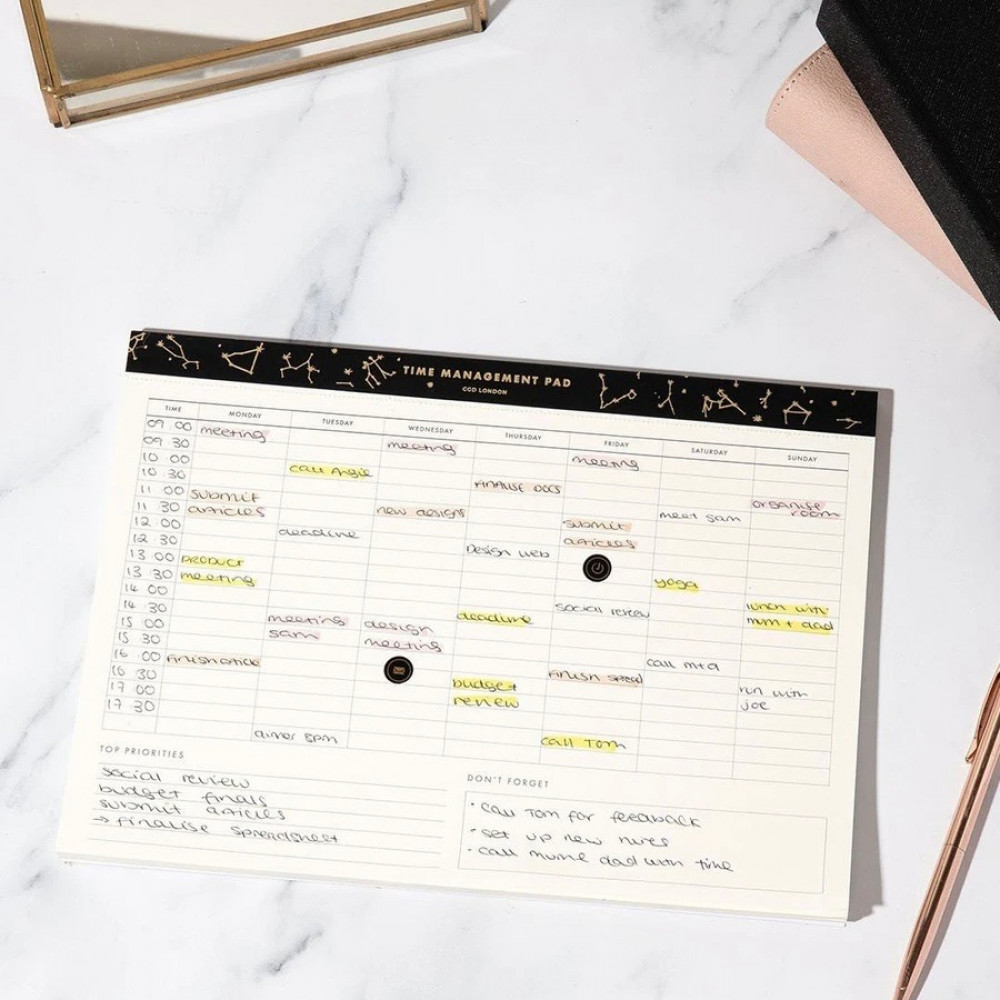 TIME MANAGEMENT PAD
CGD LONDON
TIME MONDAY TUESDAY WEDNESDAY THURSDAY FRIDAY SATURDAY SUNDAY
09 00 meeting
09 30 meeting meeting
10 00 call Angie
10 30 FINALISE DOCS
11 00 submit organise
11 30 articles new designs meet sam room
12 00 deadline submit
12 30 Design web articles
13 00 PRODUCT
13 30 meeting yoga
14 00 social review lunch with
14 30 deadline mum + dad
15 00 meeting design
15 30 sam meeting
16 00 finish article finish spread call m+d
16 30 budget run with
17 00 review joe
17 30
dinner 8pm call Tom
TOP PRIORITIES
social review
budget finals
submit articles
→ finalise spreadsheet
DON'T FORGET
• call Tom for feedback
• set up new
• call dad with time